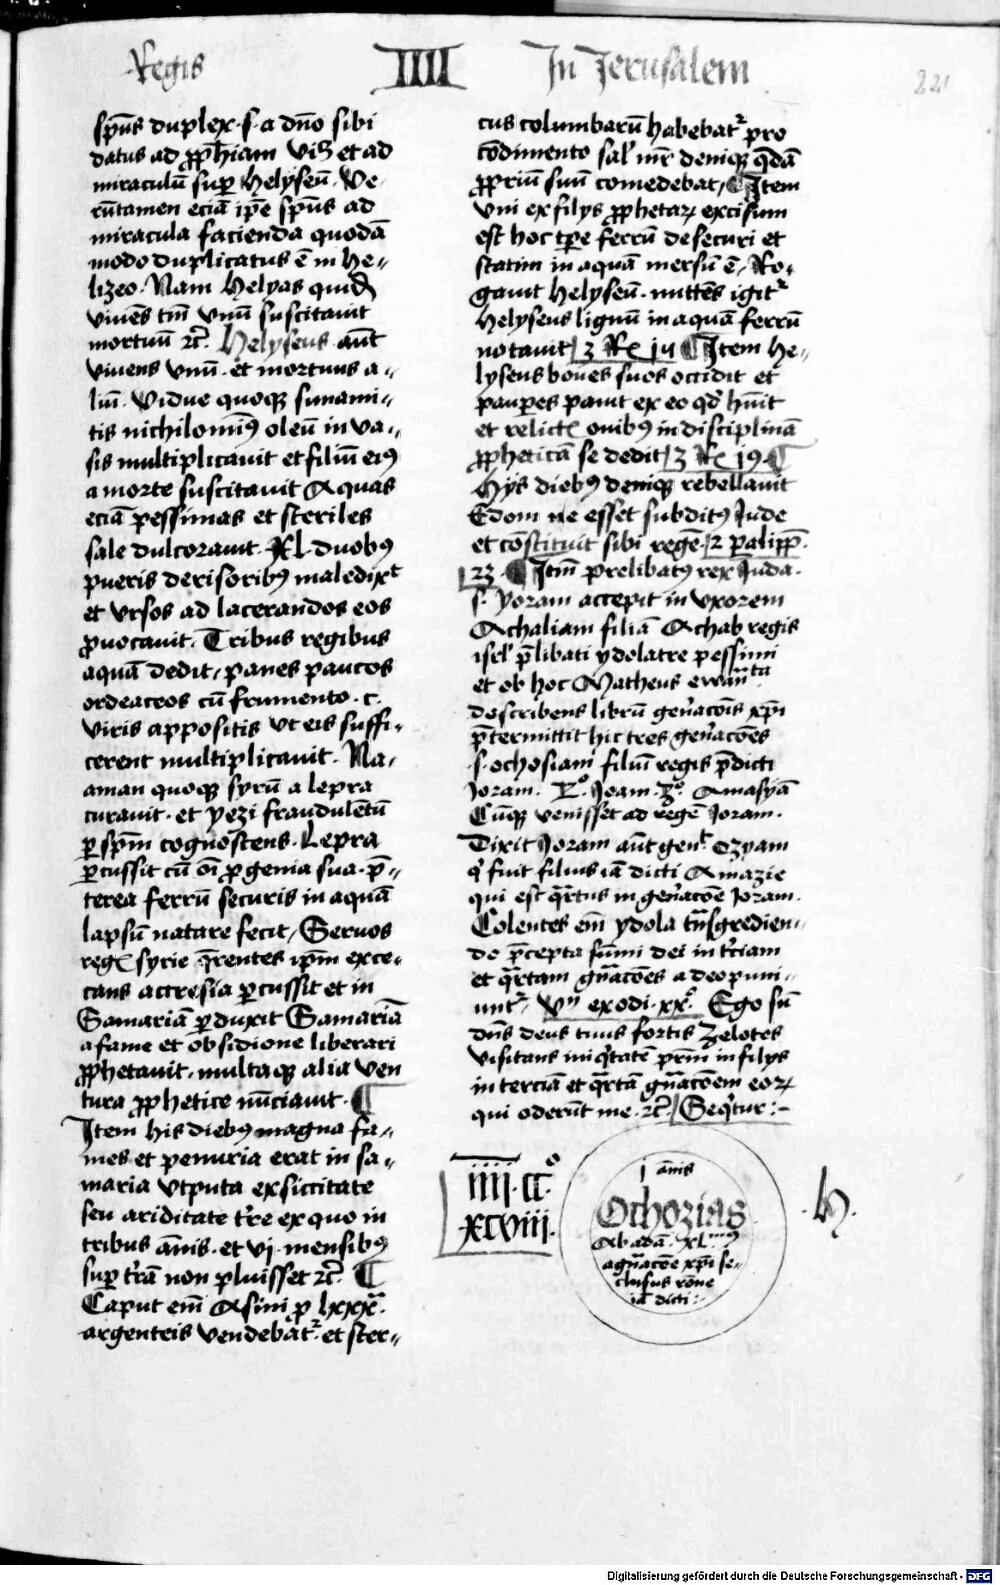 Regis IIII In Jerusalem
221
sp̄us duplex .s. a dn̄o sibi
datus ad ꝓph̄iam vꝫ et ad
miraculū suꝑ helyseū. Ve-
rūtamen eciā ip̄e sp̄us ad
miracula facienda quodā
modo duplicatus ē in he-
lizeo. Nam helyas quidē
viuēs tm̄ vnū suscitauit
mortuū ⁊c̄. Helyseus aūt
viuens vnū. et mortuus a-
liū. Vidue quoqꝫ sunami-
tis nichilominꝰ oleū in va-
sis multiplicauit et filiū eiꝰ
a morte suscitauit Aquas
eciā pessimas et steriles
sale dulcorauit. XL. duobꝰ
pueris derisoribꝰ maledixᵗ
et vrsos ad lacerandos eos
ꝓuocauit. Tribus regibus
aquā dedit, panes paucos
ordeaceos cū frumento .c.
viris appositis vt eis suffi-
cerent multiplicauit. Na-
aman quoqꝫ syrū a lepra
curauit. et yezi fraudulētū
ꝑ sp̄m cognoscens. Lepra
ꝑcussit cū oī ꝓgenia sua. p̄-
terea ferrū securis in aquā
lapsū natare fecit, Seruos
regꝭ syrie q̄rentes ip̄m exce-
cans acresia ꝑcussit et in
Samariā ꝑduxit Samariā
a fame et obsidione liberari
ꝓphetauit. multaqꝫ alia ven
tura ꝓphetice nūciauit. ¶
Item his diebꝰ magna fa-
mes et penuria erat in sa-
maria vtputa ex siccitate
seu ariditate tr̄e ex quo in
tribus ānis. et vj. mensibꝰ
suꝑ tr̄ā non pluisset ⁊c̄. ¶
Caput em̄ Asini ꝓ lxxxᵃ.
argenteis vendebatʳ. et ster-
cus columbarū habebatʳ pro
cōdimento sal̄ mr̄ deniqꝫ q̄dā
ꝓpriū suū comedebat, ¶ Item
vni ex filijs ꝓphetaꝝ excisum
est hoc tꝑe ferrū de securi et
statim in aquā mersū ē, Ro-
gauit helyseū. mittēs igitʳ
Helyseus lignū in aquā ferrū
natauit
¶ Item he-
lyseus boues suos occidit et
pauꝑes pauit ex eo qd̄ hūit
et relictꝭ ouibꝰ in disciplinā
ꝓpheticā se dedit 3 Rꝭ 19 ¶
Hijs diebꝰ deniqꝫ rebellauit
Edom ne esset subditꝰ Jude
et cōstituit sibi regē. 2 ꝑalipp̄.
¶ Itm̄ prelibatꝰ rex Juda.
s. yoram accepit in vxorem
Athaliam filiā Achab regis
isrl̄ p̄libati ydolatre pessimi
et ob hoc Matheus ewāⁿᵗᵃ
describens librū gen̄acōis xp̄i
p̄termittit hic tres gen̄acōes
.s. ochosiam filiū regis p̄dicti
Joram. 2º. Joam. 3º. Amasyā
Cūqꝫ venisset ad regē Joram.
Dixit Joram aūt genᵗ. Ozyam
qⁱ fuit filius iā dicti Amazie
qui est qᵃrtus in gen̄acōe Joram.
Colentes em̄ ydola tn̄sgredien-
do p̄cepta sūmi dei in tr̄iam
et qᵃrtam gn̄acōes a deo puni-
untʳ, Vn̄ exodi .xxº. Ego sū
dn̄s deus tuus fortis Zelotes
visitans iniqⁱtatē prm̄ in filijs
in terciā et qᵃrtā gn̄acōem eoꝝ
qui oderūt me. ⁊c̄. Seqⁱtur :-
iiii.ccº
xcviii.
j ānis
Ochozias
Ab adā. xl
a gn̄acōe xp̄i se-
clusus rōne
iā dicti :-
.h.
Digitalisierung gefördert durch die Deutsche Forschungsgemeinschaft - DFG